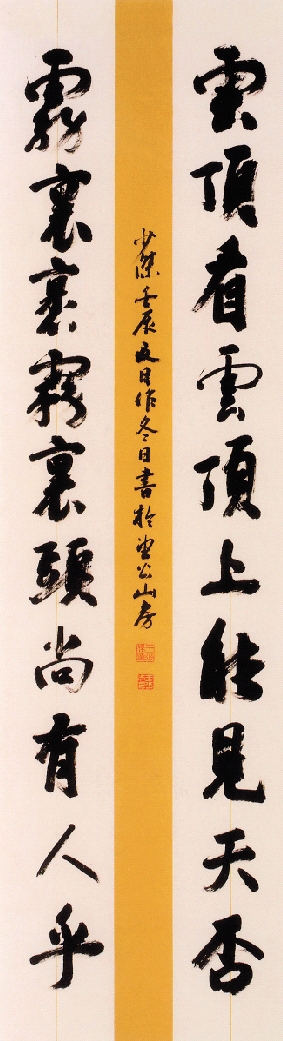 雲頂看雲頂上能見天否
霧裏裹霧裏頭尚有人乎
少傑壬辰夏日作冬日書於望公山房